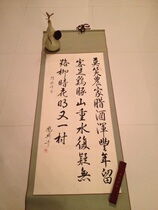 莫笑農家腊酒渾豐年留
客足鷄豚山重水複疑無
路柳暗花明又一村